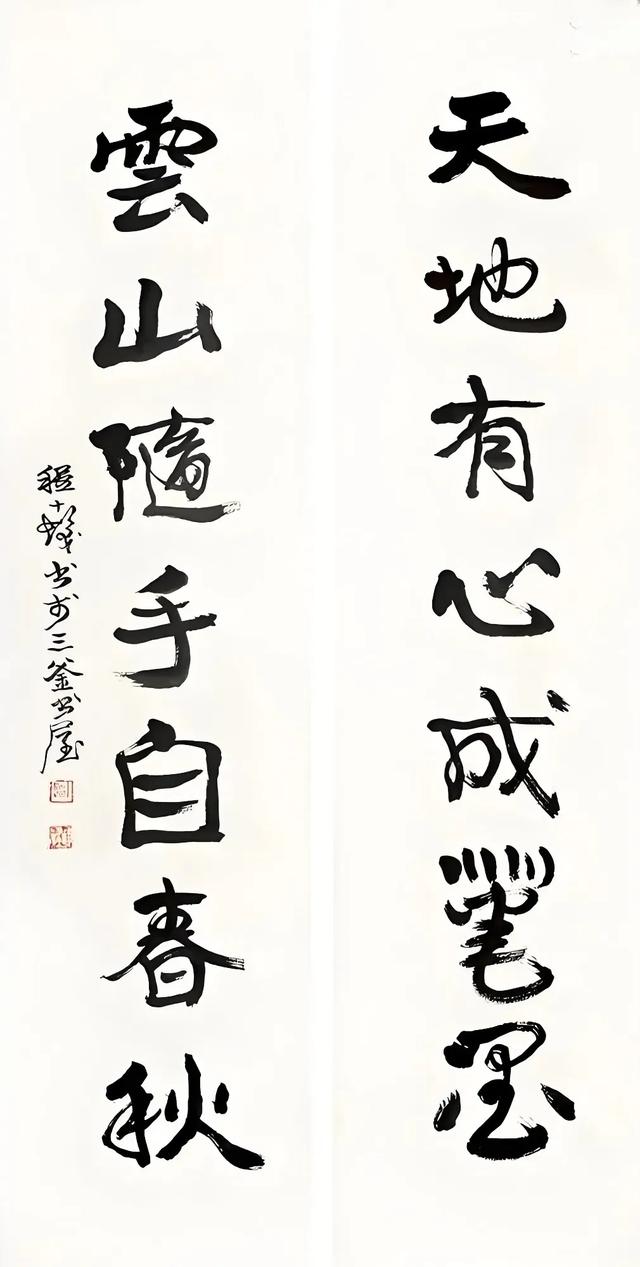 天地有心成笔墨
雲山隨手自春秋
程十髮书於三釜书屋